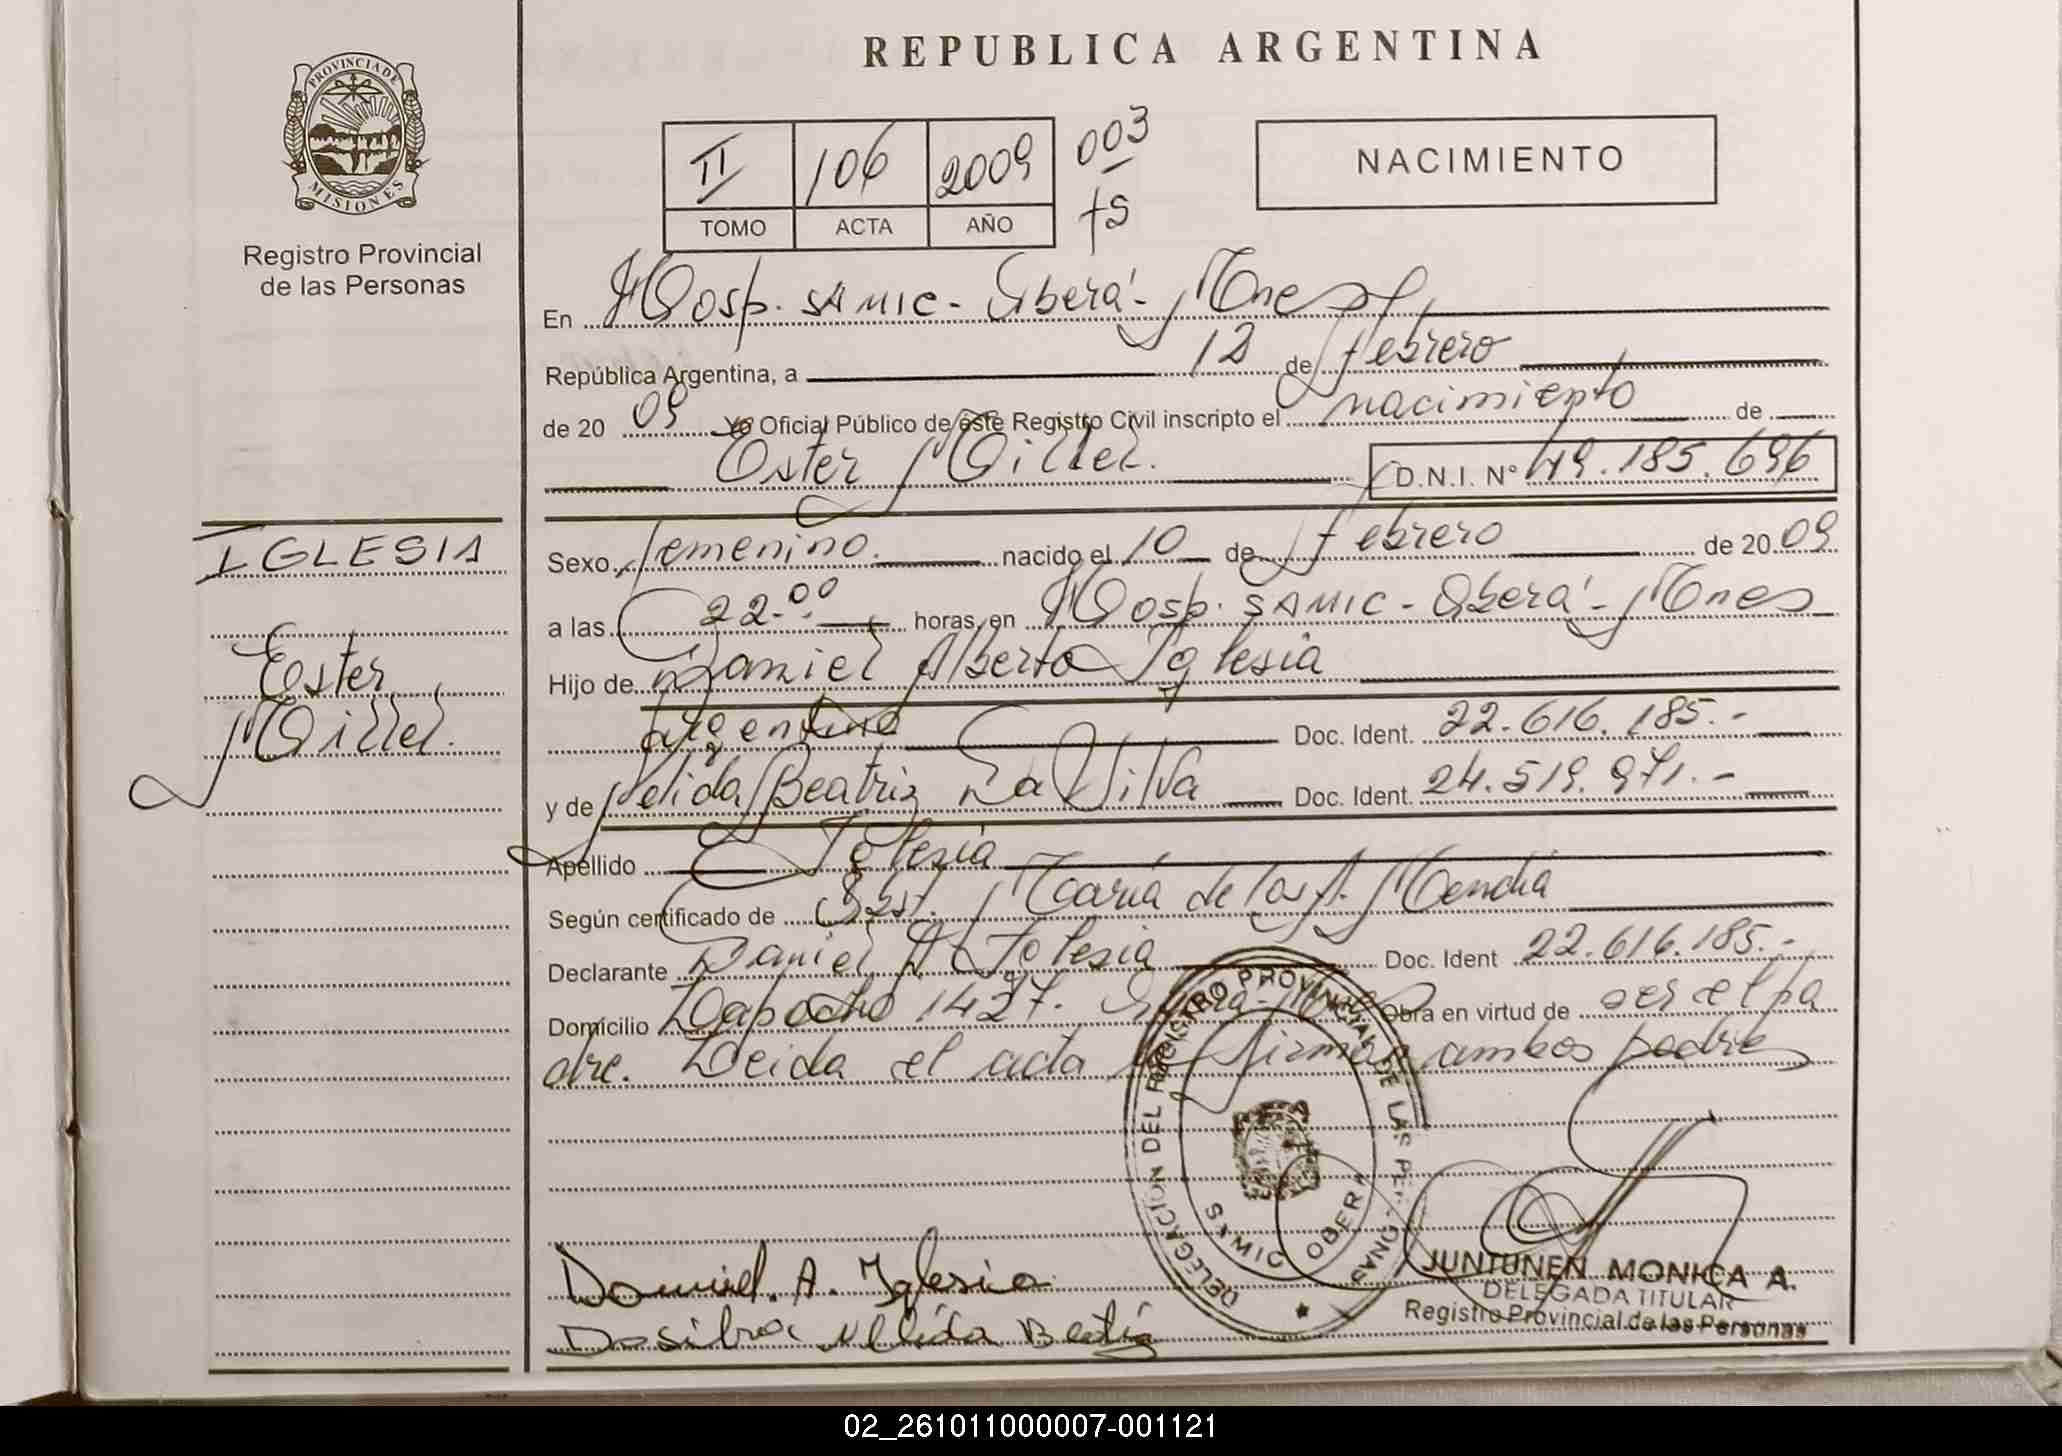 REPUBLICA ARGENTINA
PROVINCIA DE
MISIONES
Registro Provincial
de las Personas
II 106 2009 003
TOMO ACTA AÑO fs
NACIMIENTO
En Hosp. SAMIC - Oberá - Mnes
República Argentina, a 12 de febrero
de 20 09 Yo Oficial Público de este Registro Civil inscripto el nacimiento de
Ester D.N.I. Nº 49.185.696
IGLESIA
Ester
Sexo femenino. nacido el 10 de febrero de 20 09
a las 22.00 horas, en Hosp. SAMIC - Oberá - Mnes
Hijo de Daniel Alberto Iglesia
Argentino Doc. Ident. 22.616.185.-
y de Nelida Beatriz Da Silva Doc. Ident. 24.519.971.-
Apellido Iglesia
Según certificado de Obst. María de los A. Mendia
Declarante Daniel A. Iglesia Doc. Ident 22.616.185.-
Domicilio 1427. Oberá - Obra en virtud de ser el pa
dre. Leida el acta la firman ambos padres
DELEGACION DEL REGISTRO PROVINCIAL DE LAS PERSONAS
SAMIC OBERA
Daniel. A. Iglesia
Da silva Nelida Beatriz
JUNTUNEN MONICA A.
DELEGADA TITULAR
Registro Provincial de las Personas
02_261011000007-001121